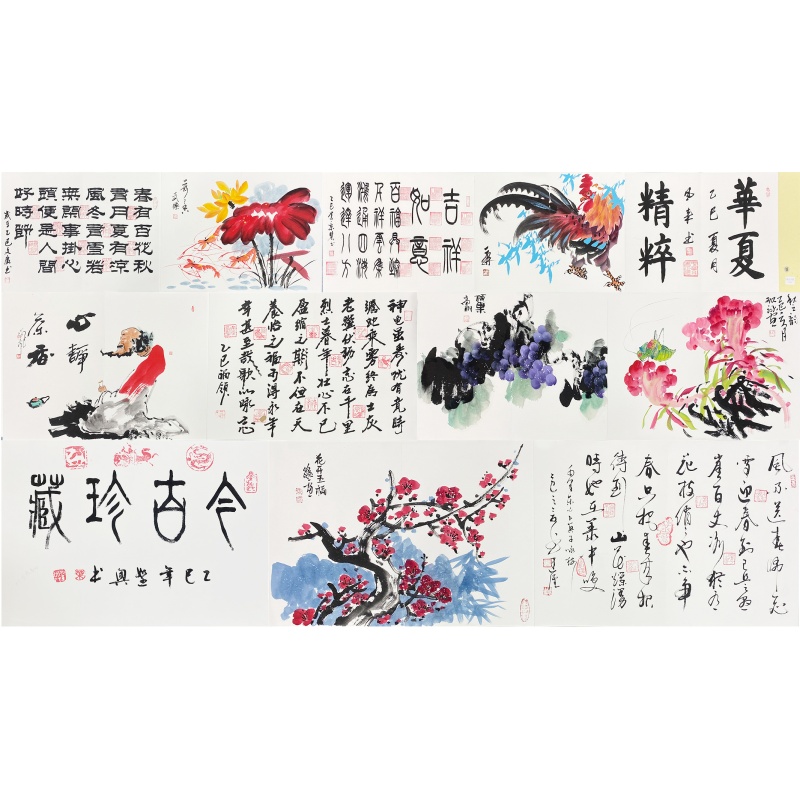 華夏
精粹
乙巳夏月
吉祥
如意
百福具臻
運達八方
春有百花秋
有月夏有涼
風冬有雪若
無閑事掛心
頭便是人間
好時節
碩果
神龜雖壽猶有竟時
騰蛇乘霧終為土灰
老驥伏櫪志在千里
烈士暮年壯心不已
盈縮之期不但在天
養怡之福可得永年
幸甚至哉歌以詠志
心靜
茶香
風雨送春歸飛
雪迎春到已是懸
崖百丈冰猶有
花枝俏俏也不爭
春只把春來報
待到山花爛漫
時她在叢中笑
花開五福
今古珍藏
乙巳年